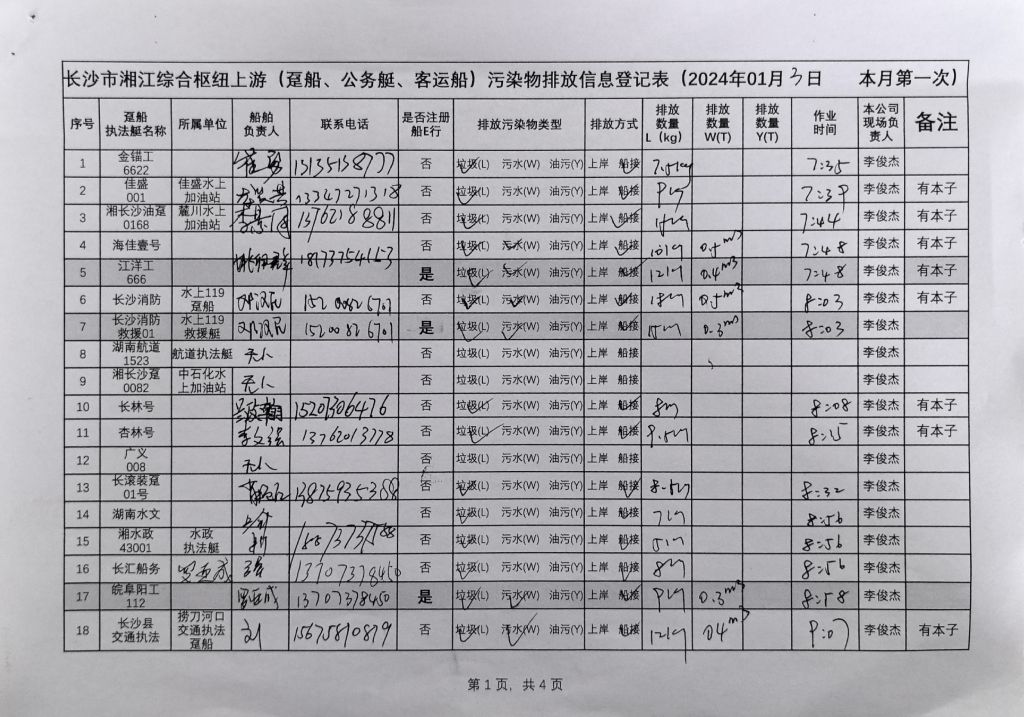 长沙市湘江综合枢纽上游（趸船、公务艇、客运船）污染物排放信息登记表（2024年01月3日 本月第一次）
序号 趸船执法艇名称 所属单位 船舶负责人 联系电话 是否注册船E行 排放污染物类型 排放方式 排放数量L（kg） 排放数量W(T) 排放数量Y(T) 作业时间 本公司现场负责人 备注
1 金锚工6622 否 垃圾(L) 污水(W) 油污(Y) 上岸 船接 7:35 李俊杰
2 佳盛001 佳盛水上加油站 否 垃圾(L) 污水(W) 油污(Y) 上岸 船接 7:39 李俊杰 有本子
3 湘长沙油趸0168 麓川水上加油站 否 垃圾(L) 污水(W) 油污(Y) 上岸 船接 7:44 李俊杰 有本子
4 海佳壹号 否 垃圾(L) 污水(W) 油污(Y) 上岸 船接 7:48 李俊杰 有本子
5 江洋工666 18173754153 是 垃圾(L) 污水(W) 油污(Y) 上岸 船接 12kg 0.4m3 7:48 李俊杰
6 长沙消防 水上119趸船 邓汉民 15200826701 否 垃圾(L) 污水(W) 油污(Y) 上岸 船接 0.5m3 8:03 李俊杰 有本子
7 长沙消防救援01 水上119救援艇 邓汉民 15200826701 是 垃圾(L) 污水(W) 油污(Y) 上岸 船接 0.3m3 8:03 李俊杰
8 湖南航道1523 航道执法艇 无人 否 垃圾(L) 污水(W) 油污(Y) 上岸 船接 李俊杰
9 湘长沙趸0082 中石化水上加油站 无人 否 垃圾(L) 污水(W) 油污(Y) 上岸 船接 李俊杰
10 长林号 15207306476 否 垃圾(L) 污水(W) 油污(Y) 上岸 船接 8kg 8:08 李俊杰 有本子
11 杏林号 李文强 13762013778 否 垃圾(L) 污水(W) 油污(Y) 上岸 船接 8:15 李俊杰 有本子
12 广义008 无人 否 垃圾(L) 污水(W) 油污(Y) 上岸 船接 李俊杰
13 长滚装趸01号 13875935388 否 垃圾(L) 污水(W) 油污(Y) 上岸 船接 8.5kg 8:32 李俊杰
14 湖南水文 否 垃圾(L) 污水(W) 油污(Y) 上岸 船接 7kg 8:56 李俊杰
15 湘水政43001 水政执法艇 否 垃圾(L) 污水(W) 油污(Y) 上岸 船接 5kg 8:56 李俊杰
16 长汇船务 罗亚成 13707378450 否 垃圾(L) 污水(W) 油污(Y) 上岸 船接 8kg 8:56 李俊杰
17 皖阜阳工112 罗亚成 13707378450 是 垃圾(L) 污水(W) 油污(Y) 上岸 船接 9kg 0.3m3 8:58 李俊杰
18 长沙县交通执法 捞刀河口交通执法趸船 刘 15675810879 否 垃圾(L) 污水(W) 油污(Y) 上岸 船接 12kg 0.4m3 9:07 李俊杰 有本子
第 1 页，共 4 页